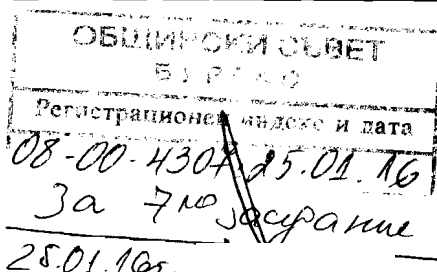 ОБЩИНСКИ СЪВЕТ
БУРГАС
Регистрационен индекс и дата
08-00-4307/25.01.16
За 7мо заседание
25.01.16г.